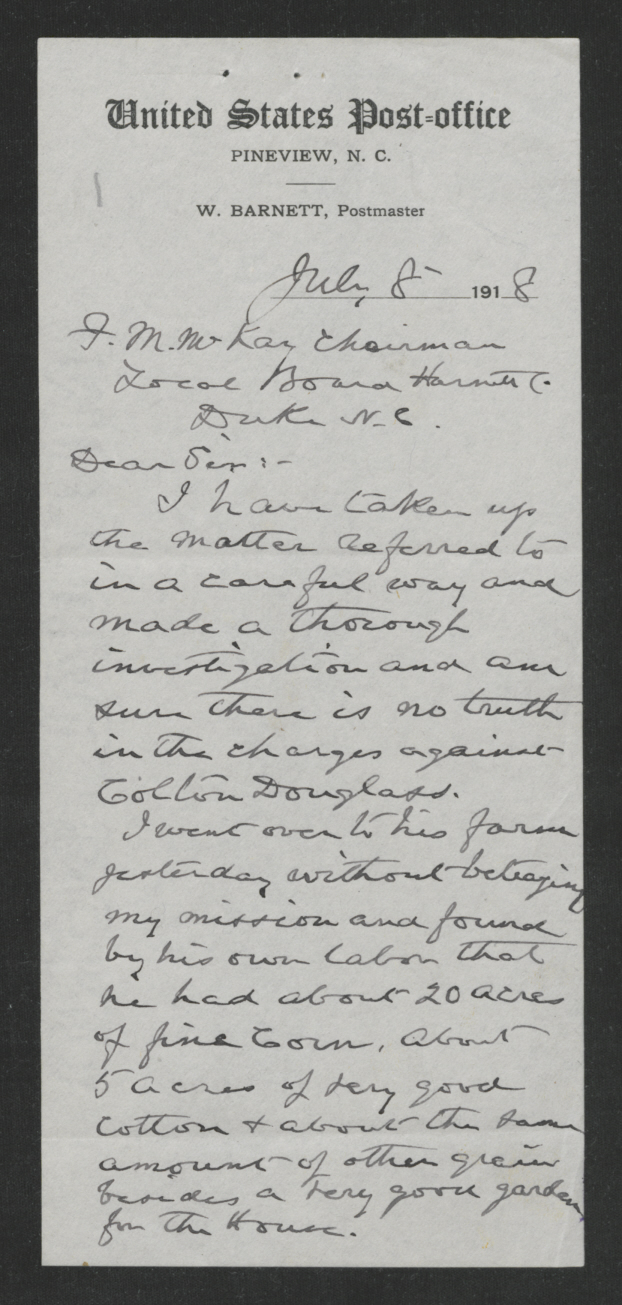 United States Post-office
PINEVIEW, N. C.
W. BARNETT, Postmaster
July 8 1918
J. M. McKay Chairman
Local Board Harnett Co
Duke N.C.
Dear Sir:-
I have taken up
the matter referred to
in a careful way and
made a thorough
investigation and am
sure there is no truth
in the charges against
Colton Douglass.
I went over to his farm
yesterday without betraying
my mission and found
by his own labor that
he had about 20 acres
of fine Corn, about
5 acres of very good
cotton & about the same
amount of other grain
besides a very good garden
for the House.